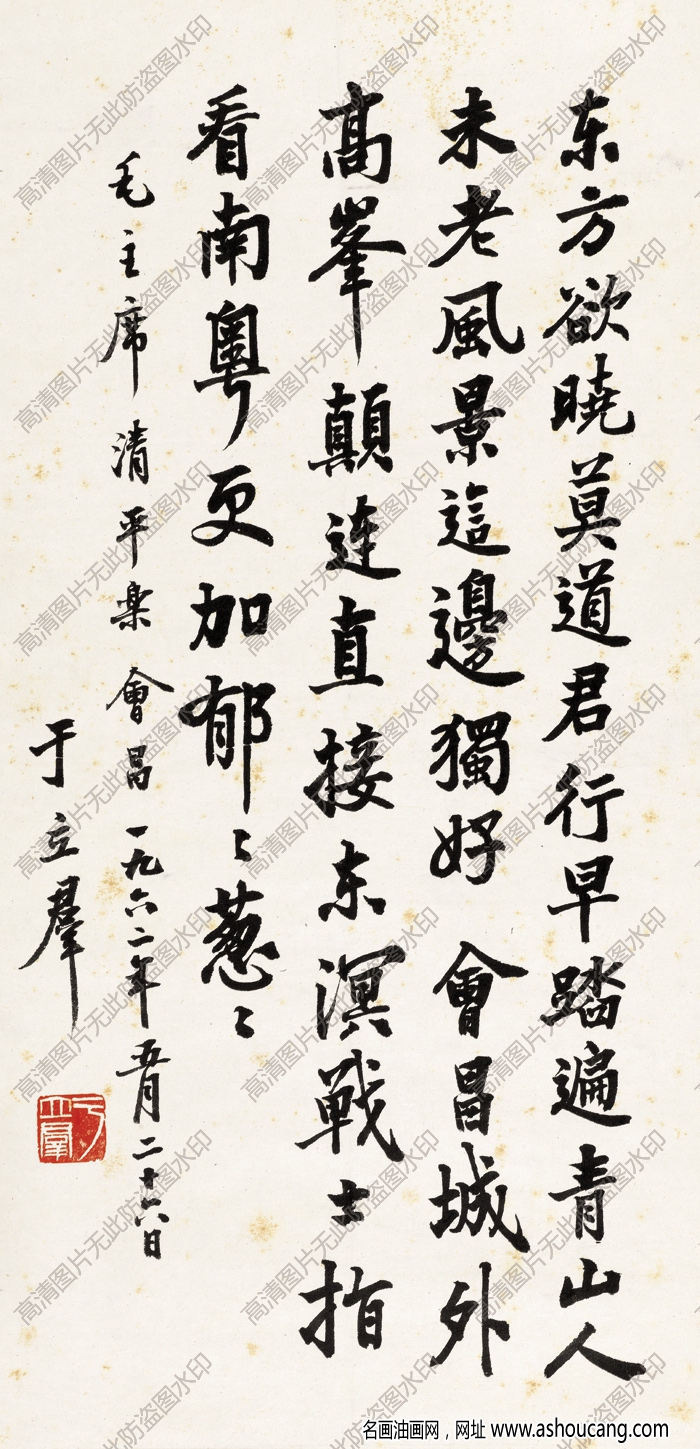 东方欲曉莫道君行早踏遍青山人
未老風景這邊獨好 會昌城外
高峯顛連直接东溟戰士指
看南粵更加郁〻葱〻
毛主席清平樂 會昌 一九六二年五月二十六日
于立羣
于立羣
名画油画网，网址 www.ashoucang.com
高清图片无此防盗图水印